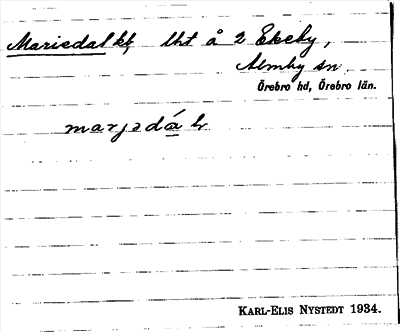 Mariedal kl, lht å 2 Ekeby,
Almby sn.
Örebro hd, Örebro län.
marjədá l.
KARL-ELIS NYSTEDT 1934.